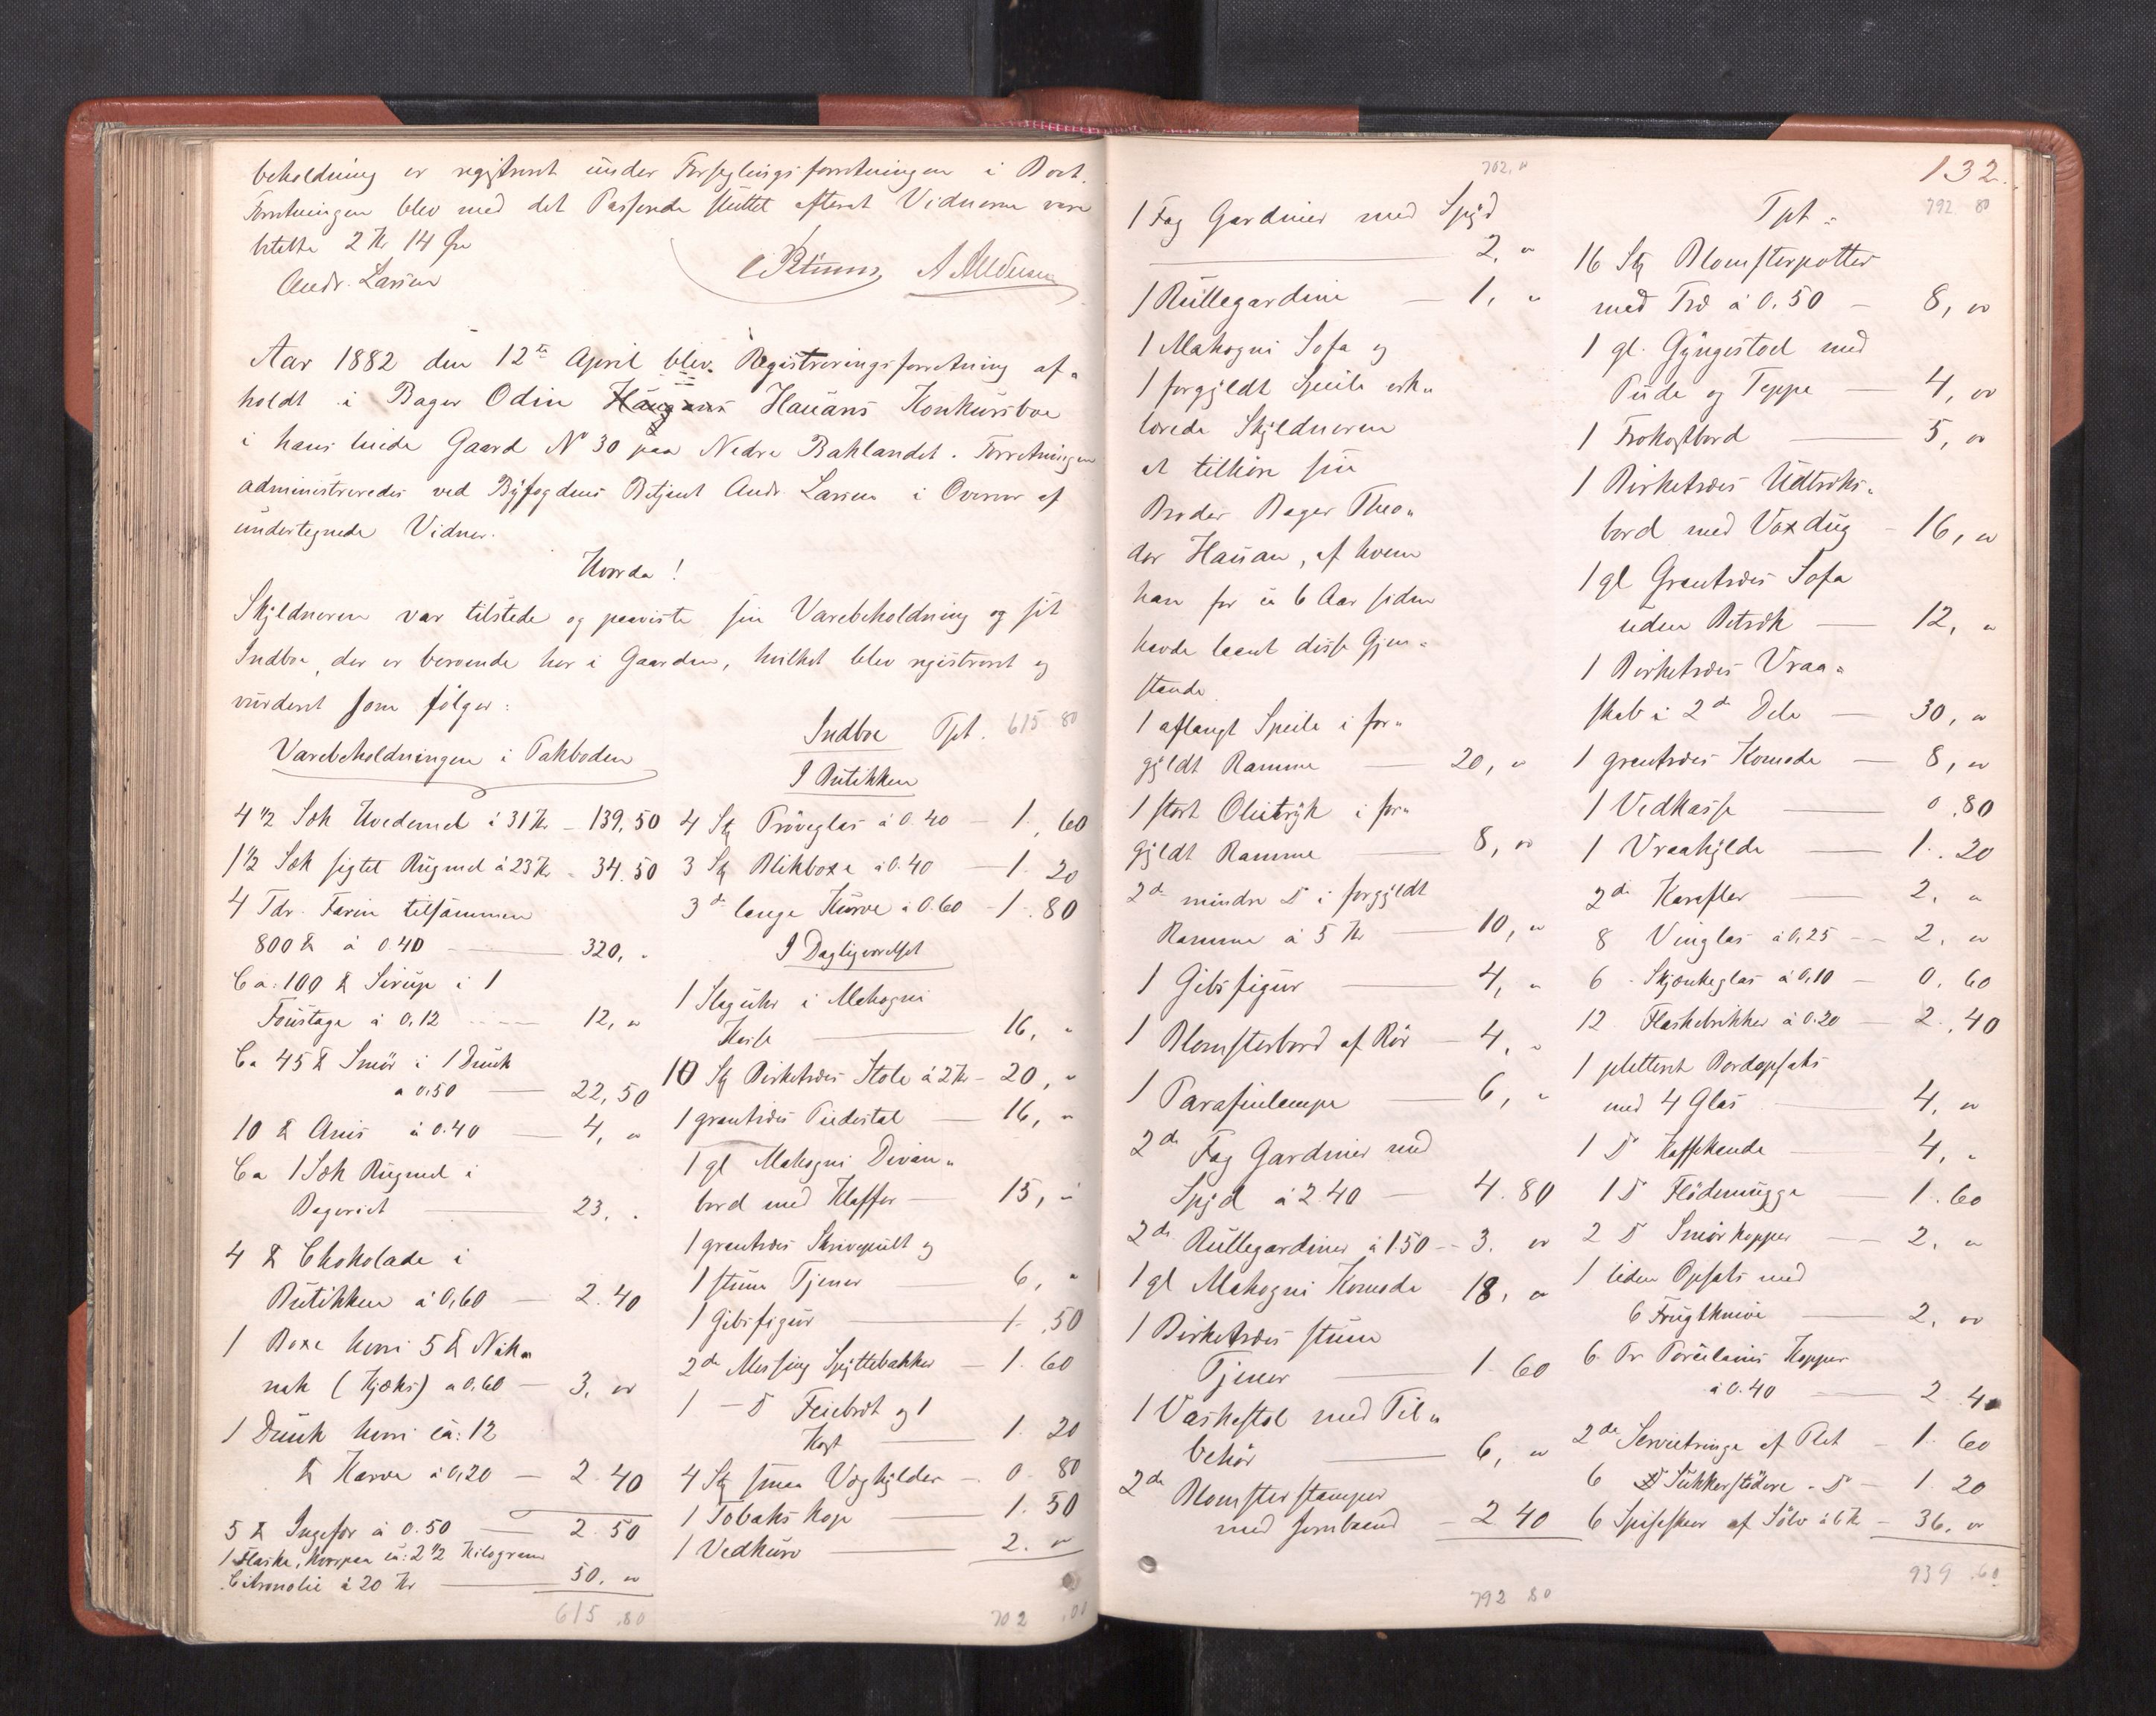 beholdning er registreret under Forseglingsforretningen i Boet.
Forretningen blev med det Passerede sluttet efterat Vidnerne vare
betalte 2 Kr 14 Øre
Andr. Larsen
Aar 1882 den 12te April blev Registreringsforretning af-
holdt i Bager Odin Hauans Konkursboe
i hans leiede Gaard No 30 paa Nedre Baklandet. Forretningen
administreredes ved Byfogdens Betjent Andr. Larsen i Overvær af
undertegnede Vidner.
Hvorda!
Skyldneren var tilstede og paaviste sin Varebeholdning og sit
Indboe, der er beroende her i Gaarden, hvilket blev registreret og
vurderet som følger:
Varebeholdningen i Pakboden
4 1/2 Sæk Hvedemel à 31 Kr - 139,50
1 1/2 Sæk sigtet Rugmel à 23 Kr - 34.50
4 Tdr. Farin tilsammen
800 ℔ à 0.40 - 320, "
Ca: 100 ℔ Sirup i 1
Foustage à 0,12 - 12, "
Ca 45 ℔ Smør i 1 Dunk
a 0,50 - 22,50
10 ℔ Anis à 0.40 - 4, "
Ca 1 Sæk Rugmel i
Bageriet - 23, "
4 ℔ Chokolade i
Butikken à 0,60 - 2.40
1 Boxe hvori 5 ℔ Nik-
nak (Kjæks) a 0,60 - 3, "
1 Dunk hvori ca: 12
℔ Karve à 0,20 - 2.40
5 ℔ Ingefær à 0.50 - 2.50
1 Flaske, hvorpaa ca: 2 1/2 Kilogram
Citronolie à 20 Kr - 50, "
615.80
Indboe Tpt. 615 80
I Butikken
4 Stk Prøveglas à 0.40 - 1.60
3 Stk Blikboxe à 0.40 - 1.20
3de lange Kurve à 0.60 - 1.80
I Dagligværelset
1 Slaguhr i Mahogni
Kasse - 16, "
10 Stk Birketræes Stole à 2 Kr - 20, "
1 grantræes Piedestal - 16, "
1 gl Mahogni Divan-
bord med Klaffer - 15, "
1 grantræes Skrivepult og
1 stum Tjener - 6, "
1 Gibsfigur - 1.50
2de Messing Spyttebakker - 1.60
1 - D Feiebræt og 1
Kost - 1.20
4 Stk smaa Væghylder - 0.80
1 Tobaks Kop - 1.50
1 Vedkurv - 2. "
702 .00
702, "
1 Fag Gardiner med Spyd
2, "
1 Rullegardin - 1, "
1 Mahogni Sofa og
1 forgyldt Speile erk-
lærede Skyldneren
at tilhøre sin
Broder Bager Theo-
dor Hauan, af hvem
han for ca 6 Aar siden
havde laant disse Gjen-
stande
1 aflangt Speile i for-
gyldt Ramme - 20, "
1 stort Olietryk i for-
gyldt Ramme - 8, "
2de mindre D i forgyldt
Ramme à 5 Kr - 10, "
1 Gibsfigur - 4, "
1 Blomsterbord af Rør - 4, "
1 Parafinlampe - 6, "
2de Fag Gardiner med
Spyd à 2.40 - 4.80
2de Rullegardiner à 1.50 - 3. "
1 gl Mahogni Komode 18, "
1 Birketræes stum
Tjener - 1.60
1 Vaskestol med Til-
behør - 6, "
2de Blomsterstamper
med Jernbaand - 2 40
792 80
132.
Tpt. 792 80
16 Stk Blomsterpotter
med Træ à 0.50 - 8, "
1 gl. Gyngestol med
Pude og Teppe - 4, "
1 Frokostbord - 5, "
1 Birketræes Udtræks-
bord med Voxdug - 16, "
1 gl Grantræes Sofa
uden Betræk - 12, "
1 Birketræes Vraa-
skab i 2de Dele - 30, "
1 grantræes Komode - 8, "
1 Vedkasse - 0.80
1 Vraahylde - 1.20
2de Karafler - 2, "
8 Vinglas à 0,25 - 2, "
6 Skjænkeglas à 0,10 - 0.60
12 Flaskebrikker à 0.20 - 2.40
1 pletteret Bordopsats
med 4 Glas - 4, "
1 D Kaffekande - 4, "
1 D Flødemugge - 1.60
2 D Smørkopper - 2, "
1 liden Opsats med
6 Frugtknive - 2, "
6 Pr Porcelains Kopper
à 0.40 - 2.40
2de Servietringe af Plet - 1.60
6 Sukkerstødere - D - 1.20
6 Spiseskeer af Sølv à 6 Kr - 36, "
939.60